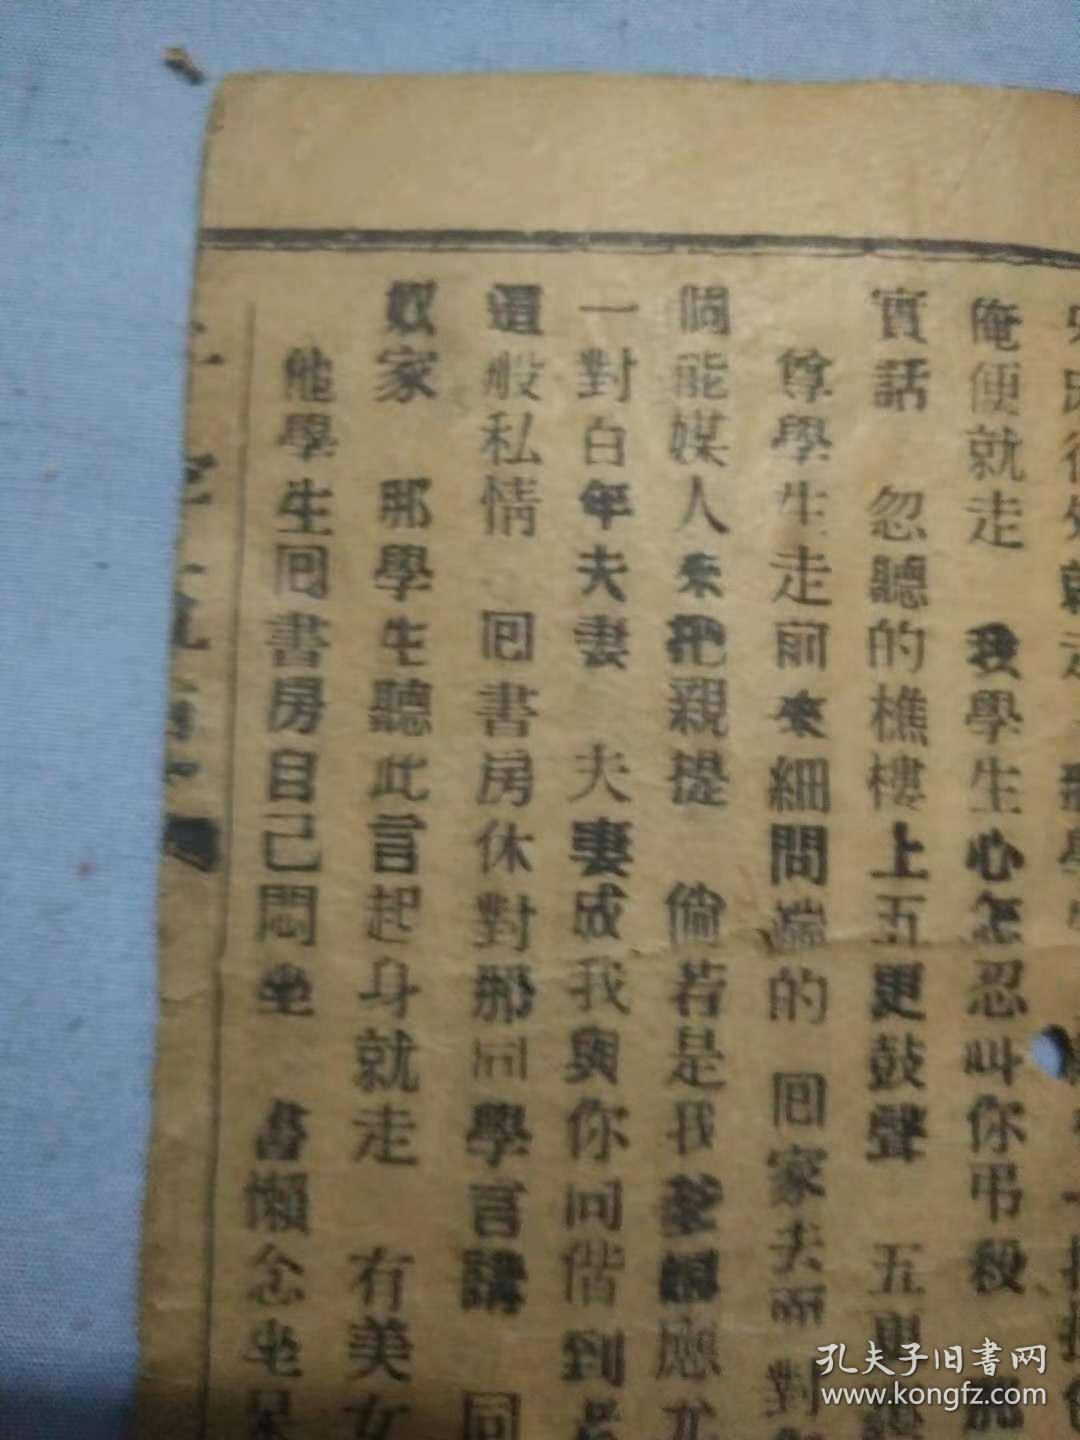 俺便就走 我學生心怎忍叫你弔殺
實話 忽聽的樵樓上五更鼓聲 五更
尊學生走前來細問端的 囘家去而對
個能媒人來把親提 倘若是我爹娘應尤
一對白年夫妻 夫妻成我與你同偕到老
這般私情 囘書房休對那同學言講 同
奴家 那學生聽此言起身就走 有美女
他學生囘書房自己悶坐 書懶念坐呆
孔夫子旧书网
www.kongfz.com